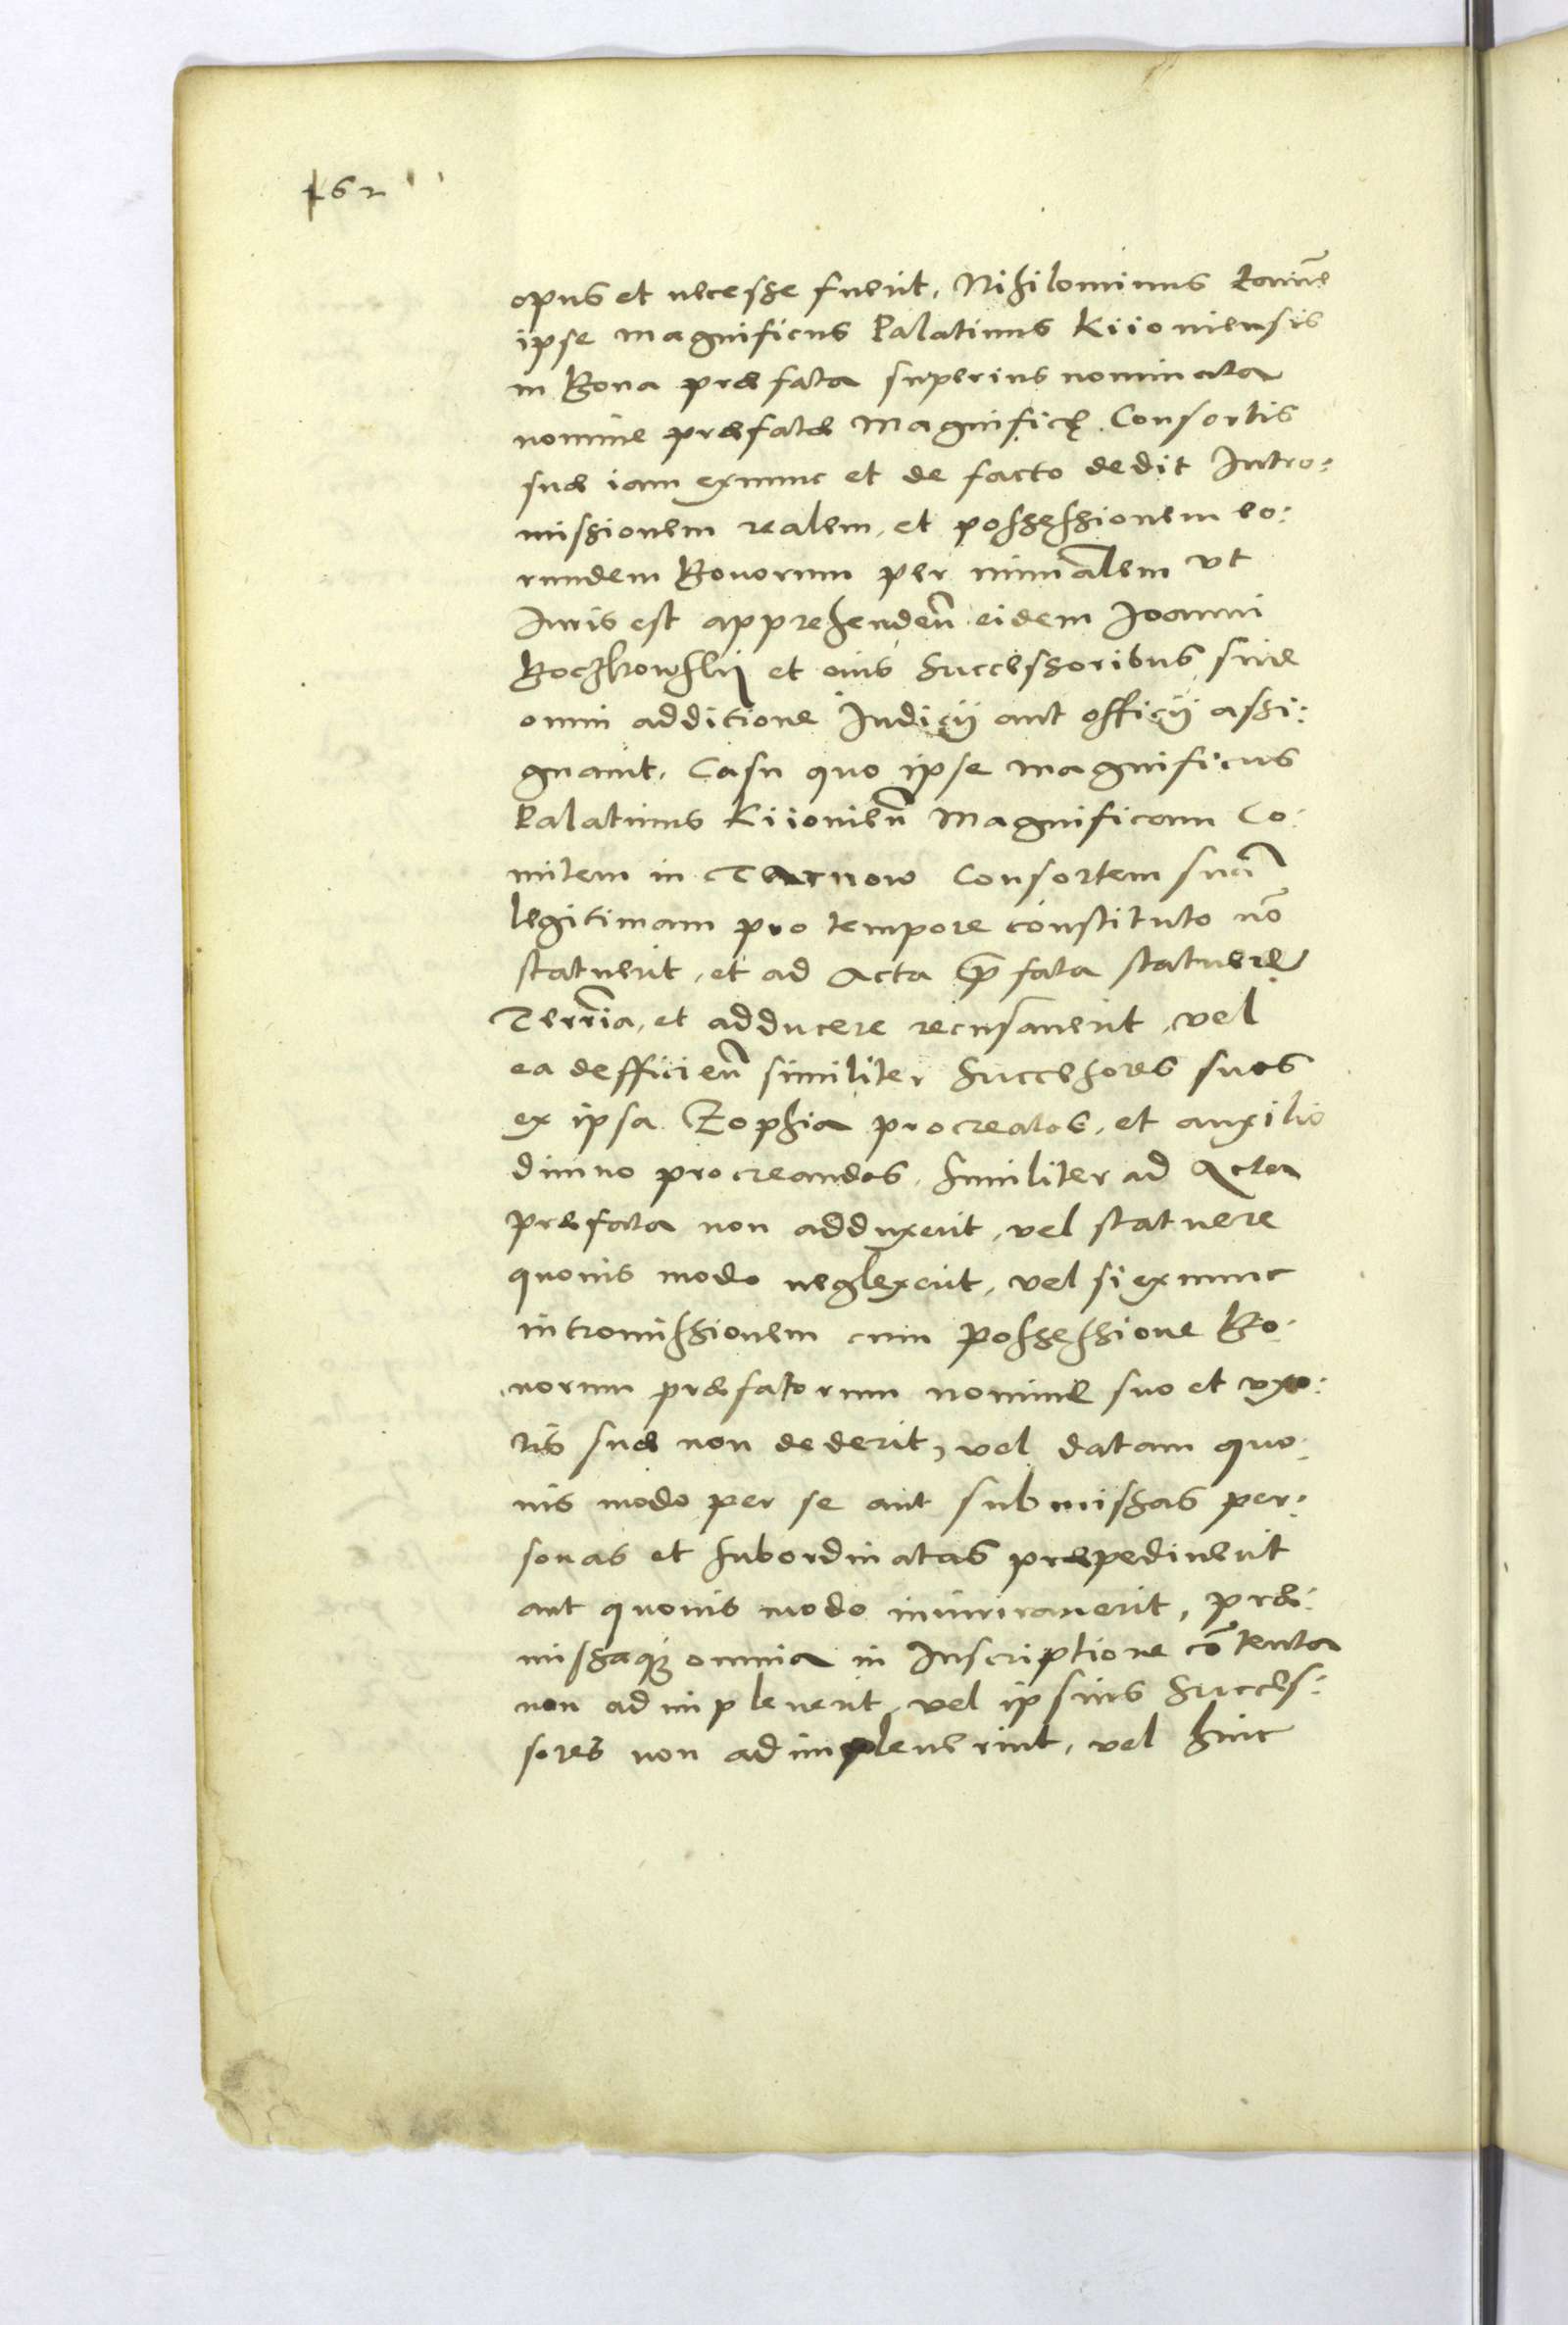 162
opus et necesse fuerit, Nihilominus tamē
ipse Magnificus Palatinus Kiiouiensis
in Bona præfata superius nominata
nomine præfatæ Magnificę Consortis
suæ iam exnunc et de facto dedit Intro:
missionem realem, et possessionem eo:
rundem Bonorum per vt
Iuris est apprehendeñ eidem Joanni
Boczkowskij et eius Successoribus sine
omni additione Iudicij aut officij assi:
gnauit. Casu quo ipse Magnificus
Palatinus Kiiouieñ Magnificam Co:
mitem in Tarnow Consortem suā
legitimam pro tempore constituto nō
statuerit, et ad Acta p̄fata statuere
Terr̄ia, et adducere recusauerit, vel
ea defficieñ similiter Successores suos
ex ipsa Zophia procreatos, et auxilio
diuino procreandos similiter ad Acta
præfata non adduxerit, vel statuere
quouis modo neglexerit, vel si exnunc
intromissionem cum possessione Bo:
norum præfatorum nomine suo et vxo:
ris suæ non dederit, vel datam quo:
uis modo per se aut submissas per:
sonas et subordinatas præpediuerit
aut quouis modo præ:
missaq; omnia in Inscriptione cōtenta
non adimpleuerit, vel ipsius Succes:
sores non adimpleuerint, vel huic